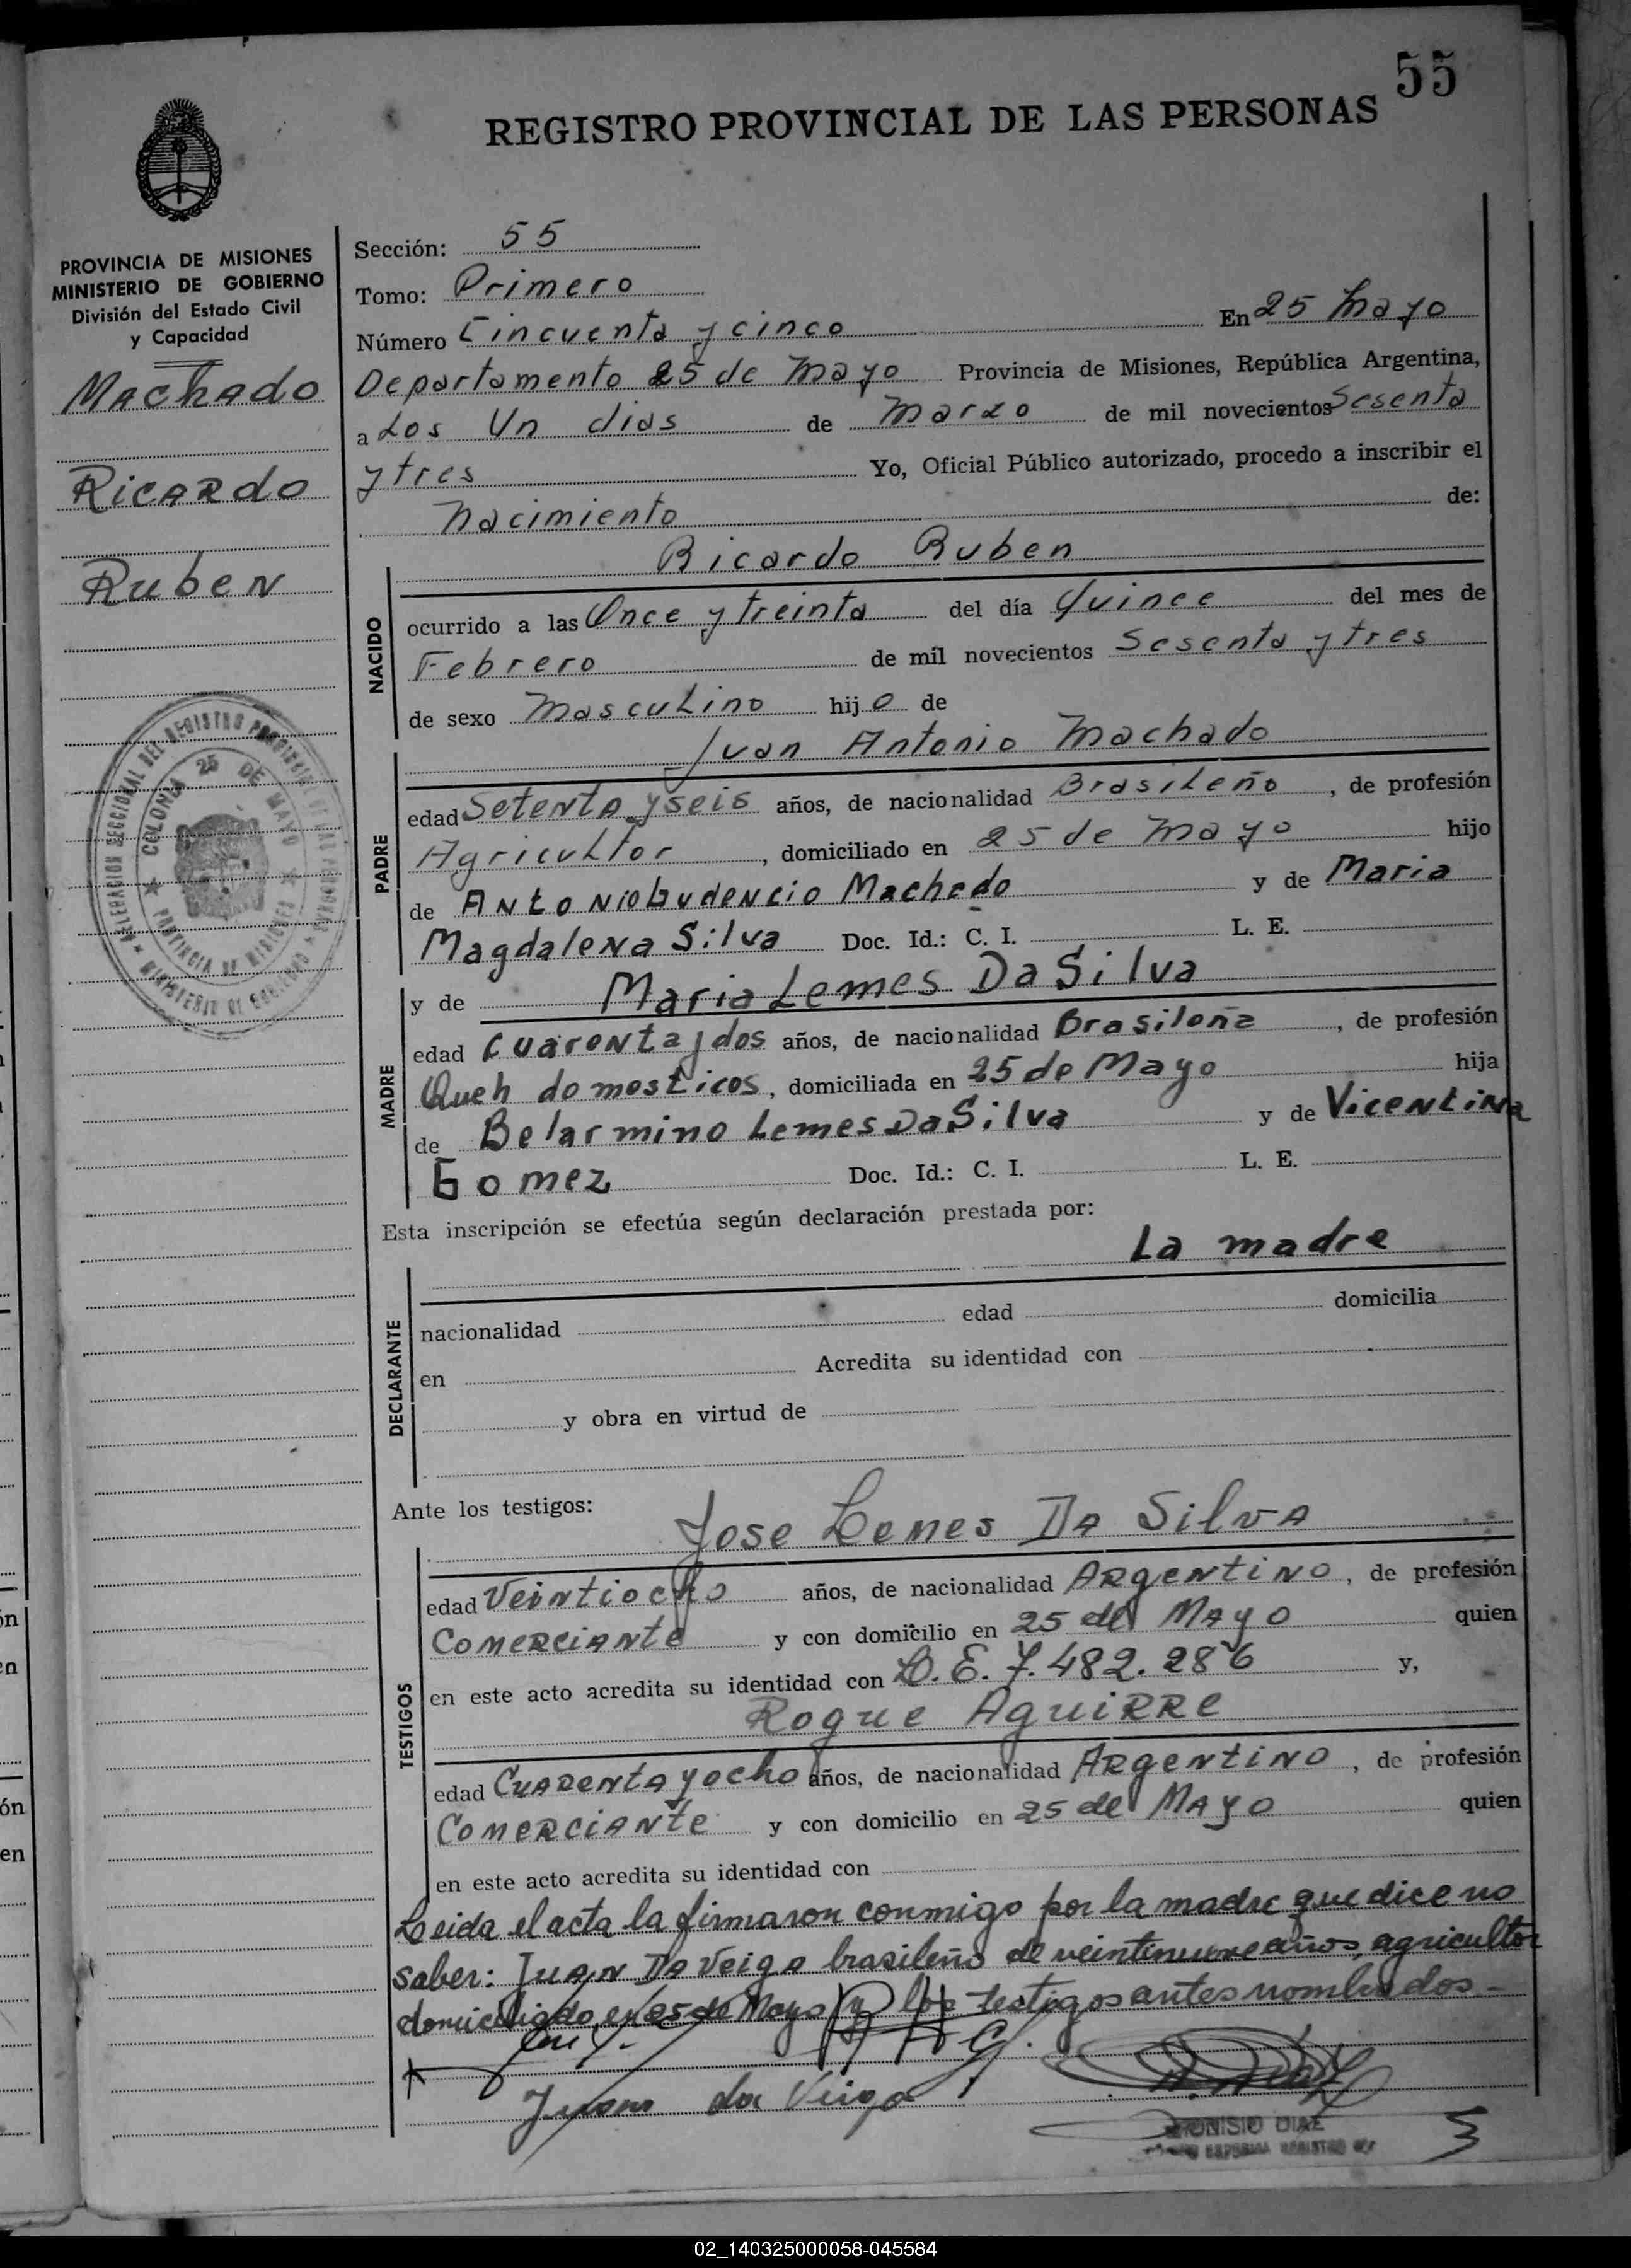 55
REGISTRO PROVINCIAL DE LAS PERSONAS
PROVINCIA DE MISIONES
MINISTERIO DE GOBIERNO
División del Estado Civil
y Capacidad
Machado
Ricardo
Ruben
COLONIA 25 DE MAYO
PROVINCIA DE MISIONES
Sección: 55
Tomo: Primero
Número Cincuenta y cinco En 25 Mayo
Departamento 25 de Mayo Provincia de Misiones, República Argentina,
a Los Un dias de Marzo de mil novecientos Sesenta
y tres Yo, Oficial Público autorizado, procedo a inscribir el
Nacimiento de:
Ricardo Ruben
NACIDO
ocurrido a las Once y treinta del día Quince del mes de
Febrero de mil novecientos Sesenta y tres
de sexo Masculino hijo de
Juan Antonio Machado
PADRE
edad Setenta y seis años, de nacionalidad Brasileño, de profesión
Agricultor, domiciliado en 25 de Mayo hijo
de Antonio Gudencio Machado y de Maria
Magdalena Silva Doc. Id.: C. I. L. E.
y de Maria Lemes Da Silva
MADRE
edad Cuarenta y dos años, de nacionalidad Brasileña, de profesión
Queh domesticos, domiciliada en 25 de Mayo hija
de Belarmino Lemes Da Silva y de Vicentina
Gomez Doc. Id.: C. I. L. E.
Esta inscripción se efectúa según declaración prestada por:
La madre
DECLARANTE
nacionalidad edad domicilia
en Acredita su identidad con
y obra en virtud de
Ante los testigos:
Jose Lemes Da Silva
TESTIGOS
edad Veintiocho años, de nacionalidad Argentino, de profesión
Comerciante y con domicilio en 25 de Mayo quien
en este acto acredita su identidad con L. E. 7.482.286 y,
Roque Aguirre
edad Cuarenta y ocho años, de nacionalidad Argentino, de profesión
Comerciante y con domicilio en 25 de Mayo quien
en este acto acredita su identidad con
Leida el acta la firmaron conmigo por la madre que dice no
saber: Juan Da Veiga brasileño de veintinueve años, agricultor
domiciliado en 25 de Mayo y los testigos antes nombrados -
Juan da Veiga
DIONISIO DIAZ
02_140325000058-045584